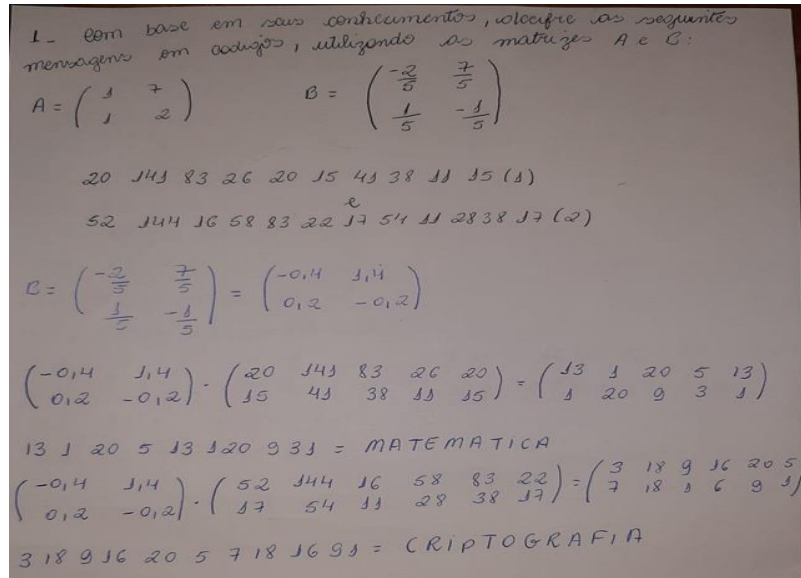 1- Com base em seus conhecimentos, decifre as seguintes
mensagens em codigos, utilizando as matrizes A e B:
A = ( 1 7
1 2 )
B = ( -2/5 7/5
1/5 -1/5 )
20 141 83 26 20 15 41 38 11 15 (1)
e
52 144 16 58 83 22 17 54 11 28 38 17 (2)
B = ( -2/5 7/5
1/5 -1/5 ) = ( -0,4 1,4
0,2 -0,2 )
( -0,4 1,4
0,2 -0,2 ) . ( 20 141 83 26 20
15 41 38 11 15 ) = ( 13 1 20 5 13
1 20 9 3 1 )
13 1 20 5 13 1 20 9 3 1 = MATEMATICA
( -0,4 1,4
0,2 -0,2 ) . ( 52 144 16 58 83 22
17 54 11 28 38 17 ) = ( 3 18 9 16 20 5
7 18 1 6 9 1 )
3 18 9 16 20 5 7 18 16 9 1 = CRIPTOGRAFIA